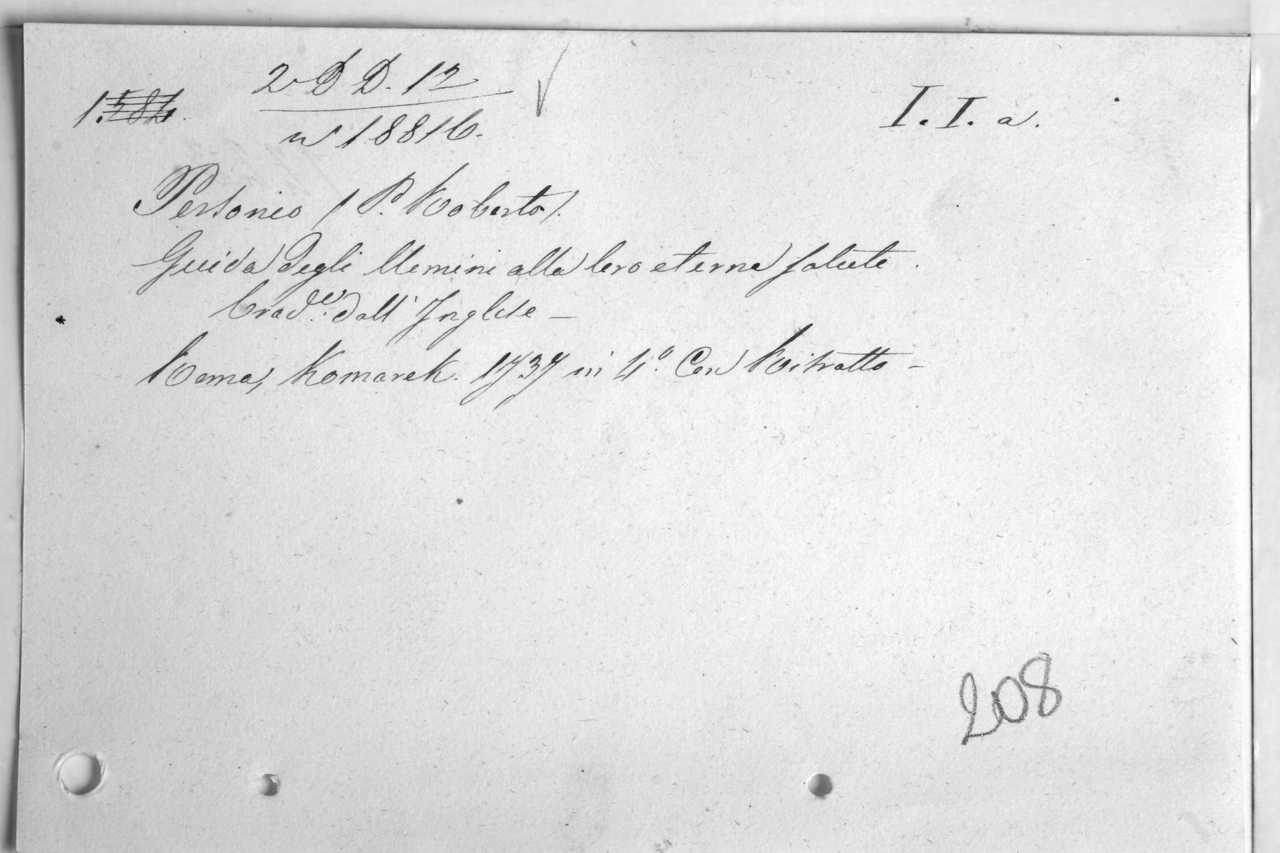 2 D D. 12
I. I. a.
n° 18816.
Personio (P. Roberto).
Guida degli Uomini alla loro eterna salute.
Trad.e dall' Inglese —
Roma, Komarek. 1737 in 4°. Con Ritratto —
208